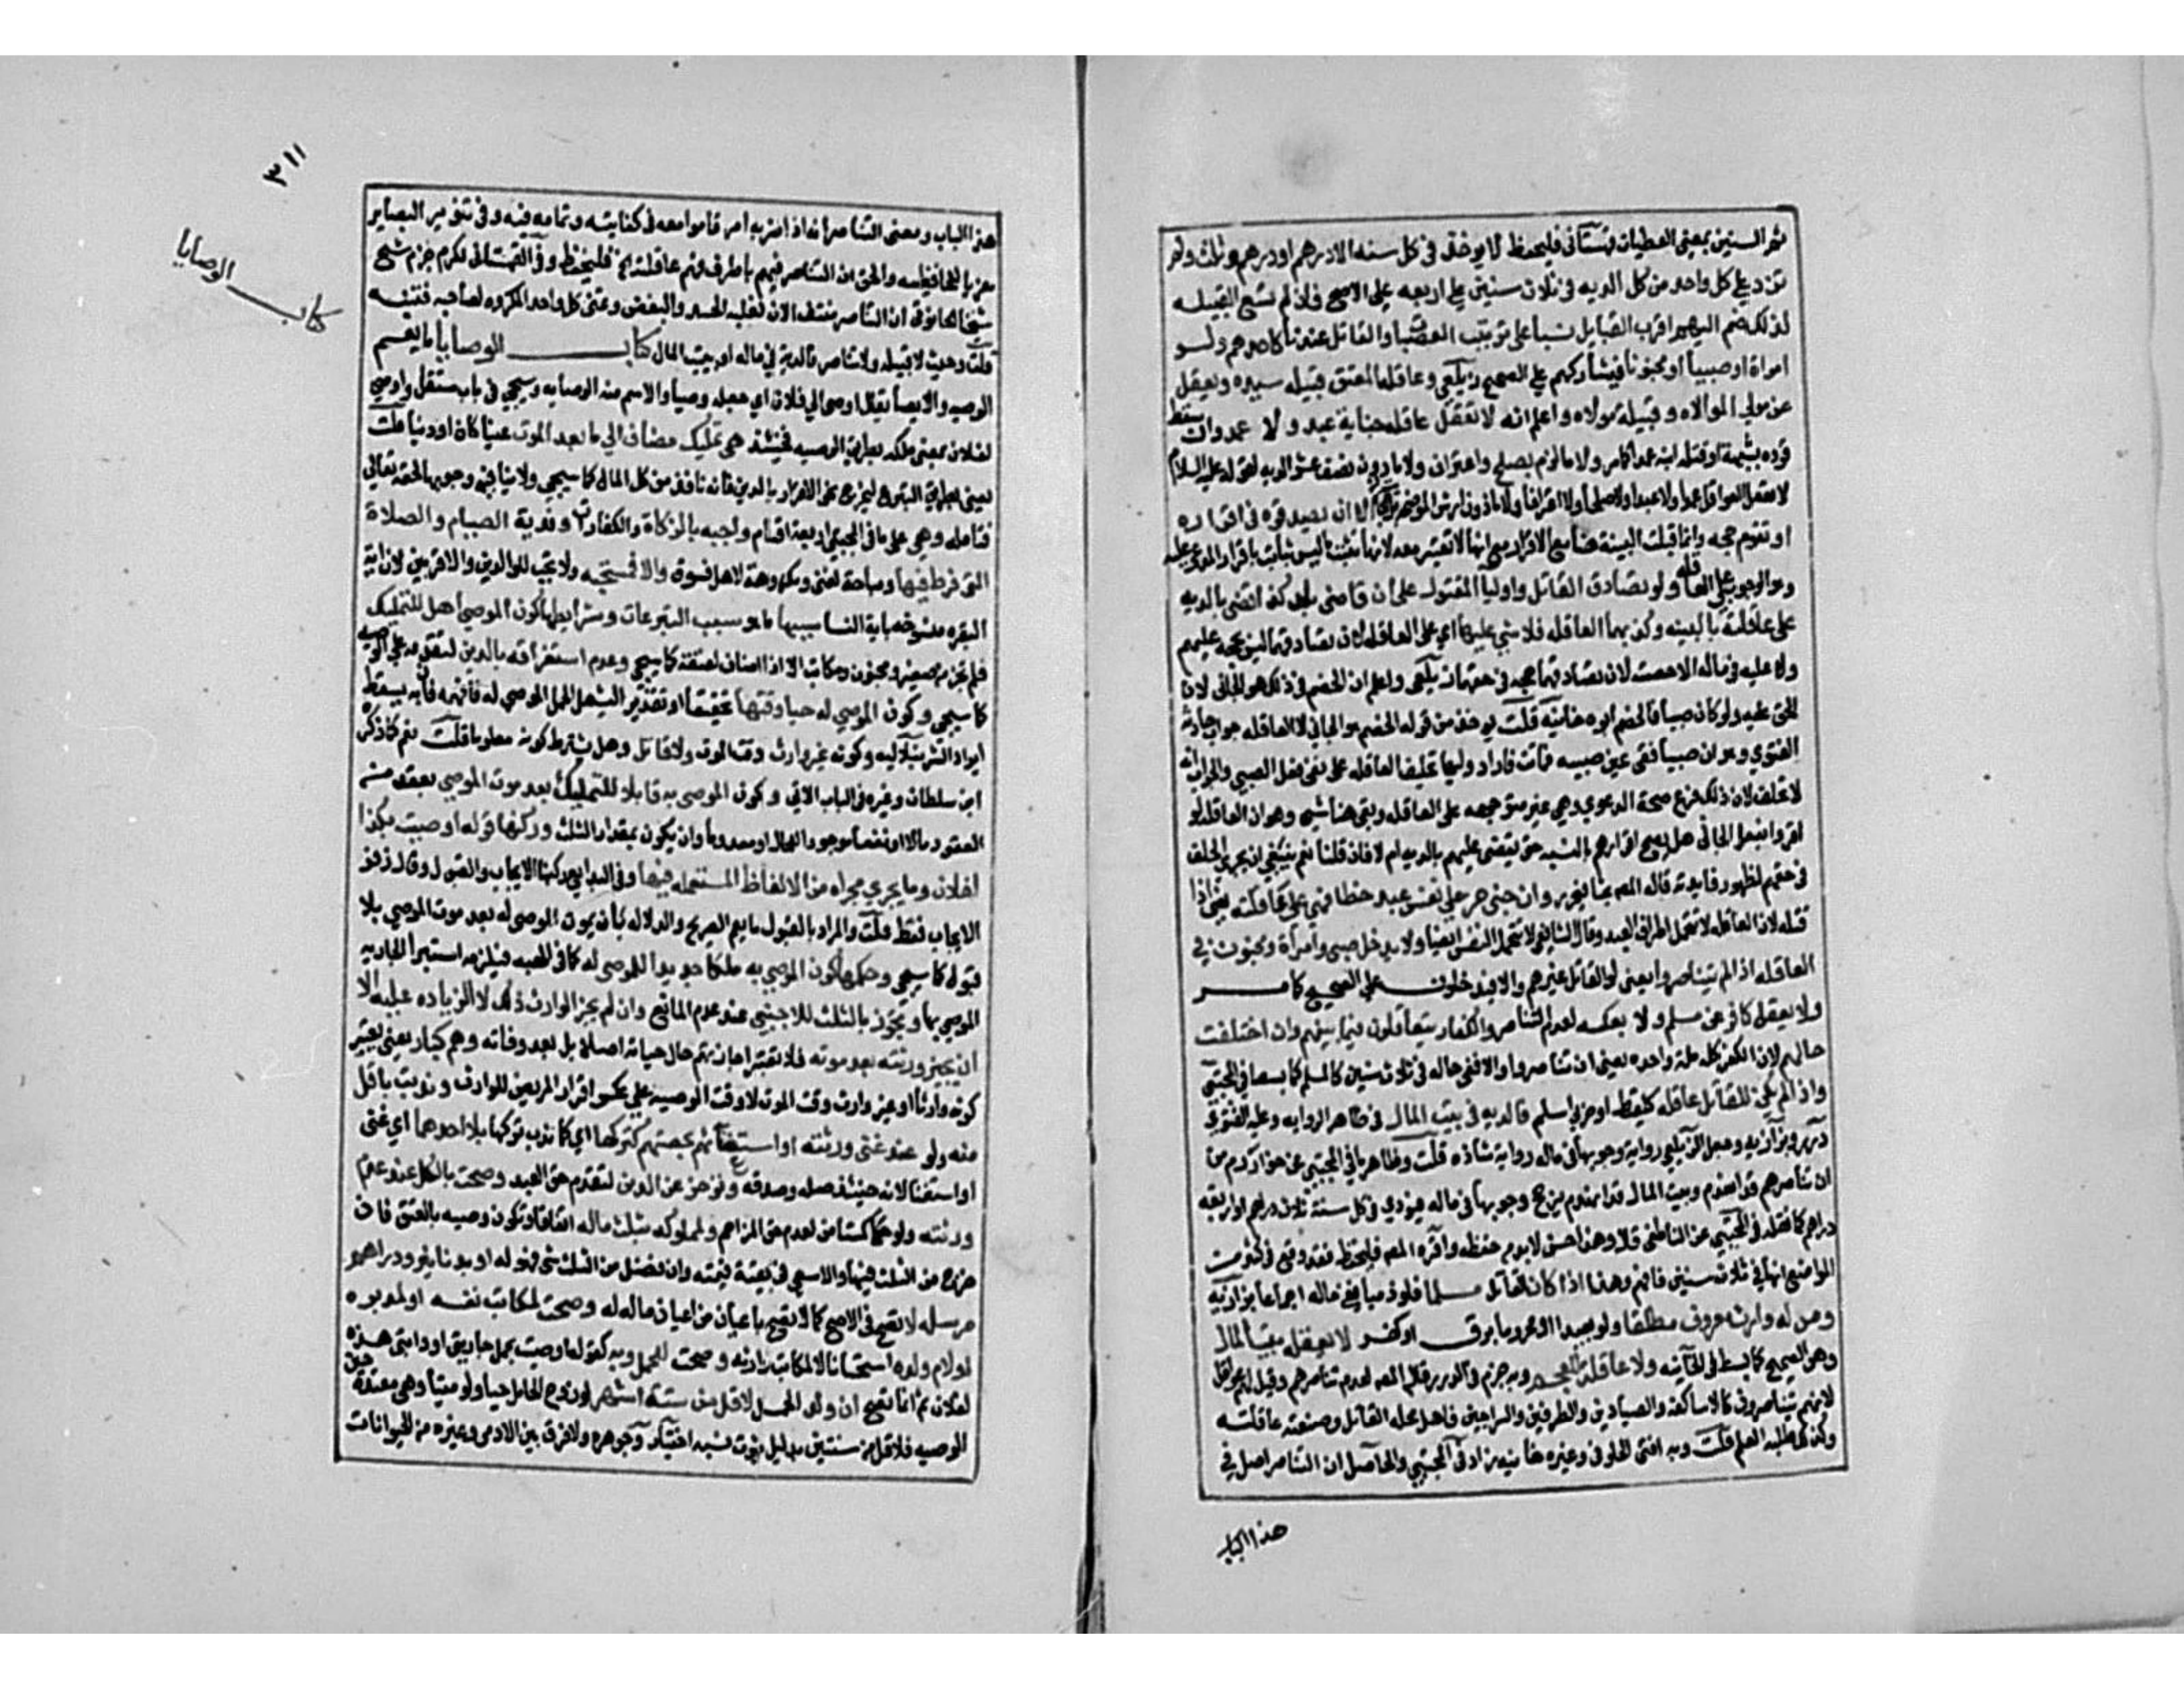 ثمر السنين بمعنى العطيات قهستاني فليحفظ لا يوخذ في كل سنه الا درهم او درهم وثلث ولم
تزد على كل واحد من كل الديه في ثلاث سنين على اربعه على الاصح فان لم تتسع القبيله
لذلك ضم اليهم اقرب القبايل نسبا على ترتيب العصبات والقاتل عندنا كاحدهم ولو
امراة او صبيا او مجنونا فيشاركهم على الصحيح زيلعي وعاقلة المعتق قبيلة سيده ويعقل
عن مولى الموالاه وقبيلة مولاه واعلم انه لا تعقل عاقله جناية عبد ولا عمد وان سقط
قوده بشبهة او قتله ابنه عمدا كما مر ولا ما لزم بصلح واعتراف ولا ما دون نصف عشر الديه لقوله عليه السلام
لا تعقل العواقل عمدا ولا عبدا ولا صلحا ولا اعترافا ولا ما دون ارش الموضحه الا ان يصدقوه في اقراره
او تقوم حجه وانما قبلت البينة هنا مع الاقرار مع انها لا تعتبر معه لانها تثبت ما ليس بثابت باقرار المدعى عليه
وهو الوجوب على العاقله ولو تصادق القاتل واوليا المقتول على ان قاضي بلد كذا قضى بالديه
على عاقلته بالبينه وكذبهما العاقله فلا شي عليها اي على العاقله لان تصادقهما ليس بحجه عليهم
ولا عليه في ماله الا حصته لان تصادقهما حجه في حقهما زيلعي واعلم ان الخصم في ذلك هو الجاني لان
الحق عليه ولو كان صبيا فالخصم ابوه خانيه قلت يوخذ من قوله الخصم هو الجاني لا العاقله جواب حادثه
الفتوى وهو ان صبيا فقى عين صبيه فماتت فاراد وليها تحليف العاقله على نفي فعل الصبي والجواب انه
لا تحلف لان ذلك فرع صحة الدعوى وهي غير متوجهه على العاقله وبقي هنا شي وهو ان العاقله لو
اقروا بفعل الجاني هل يصح اقرارهم بالنسبه حتى يقضى عليهم بالديه ام لا فان قلنا نعم ينبغي ان يجري الحلف
في حقهم لظهور فايدته قاله المص بحثا فليحرر وان جنى حر على نفس عبد خطا فهي على عاقلته يعني اذا
قتله لان العاقله لا تتحمل اطراف العبد وقال الشافعي لا تتحمل النفس ايضا ولا يدخل صبي وامراة ومجنون في
العاقله اذا لم يتناصروا يعني لو القاتل غيرهم والا فيدخلون على الصحيح كما مر
ولا يعقل كافر عن مسلم ولا بعكسه لعدم التناصر والكفار يتعاقلون فيما بينهم وان اختلفت
مللهم لان الكفر كله ملة واحده يعني ان تناصروا والا ففي ماله في ثلاث سنين كالمسلم كما بسطه في المجتبى
واذا لم يكن للقاتل عاقله كلقيط او حربي اسلم فالديه في بيت المال في ظاهر الروايه وعليه الفتوى
درر وبزازيه وجعل الزيلعي رواية وجوبها في ماله رواية شاذه قلت وظاهر ما في المجتبى عن خوارزم من
ان تناصرهم قد انعدم وبيت المال قد انهدم يرجح وجوبها في ماله فيودي في كل سنة ثلاث دراهم او اربعه
دراهم كما نقله في المجتبى عن الناطفي قال وهذا حسن لا بد من حفظه واقره المص فليحفظ فقد وقع في كثير من
المواضع انها في ثلاث سنين فافهم وهذا اذا كان القاتل مسلما فلو ذميا ففي ماله اجماعا بزازيه
ومن له وارث معروف مطلقا ولو بعيدا او محروما برق او كفر لا يعقله بيت المال
وهو الصحيح كما بسطه في الخانيه ولا عاقله للعجم وبه جزم في الدرر قاله المص لعدم تناصرهم وقيل لهم عواقل
لانهم يتناصرون كالاساكفه والصيادين والطرفين والسراجين فاهل محله القاتل وصنعته عاقلته
وكذلك طلبه العلم قلت وبه افتى الحلواني وغيره خانيه زاد في المجتبى والحاصل ان التناصر اصل في
هذا الباب
٣١١
كتاب الوصايا
هذا الباب ومعنى التناصر انه اذا حزبه امر قاموا معه في كفايته وتمامه فيه وفي تنوير البصاير
معزيا للحافظيه والحق ان التناصر فيهم بالحرف فهم عاقلته الخ فليحفظ وفي القهستاني فكرم جزم شيخ
شيخنا الحانوتي ان التناصر منتف الان لغلبه الحسد والبغض وتمني كل واحد المكروه لصاحبه فتنبه
قلت وحيث لا قبيله ولا تناصر فالدية في ماله او بيت المال كتاب الوصايا ما يعم
الوصيه والايصا يقال اوصى الى فلان اي جعله وصيا والاسم منه الوصايه وسيجي في باب مستقل واوصى
لفلان بمعنى ملكه بطريق الوصيه فحينئذ هي تمليك مضاف الى ما بعد الموت عينا كان او دينا قلت
يعني بطريق التبرع ليخرج نحو الاقرار بالدين فانه نافذ من كل المال كما سيجي ولا ينافيه وجوبها لحقه تعالى
فتامله وهي على ما في المجتبى اربعة اقسام واجبه بالزكاة والكفارات وفدية الصيام والصلاة
التي فرط فيها ومباحة لغني ومكروهة لاهل فسوق والا فمستحبه ولا تجب للوالدين والاقربين لان اية
البقره منسوخه باية النسا سببها ما هو سبب التبرعات وشرايطها كون الموصي اهلا للتمليك
فلم تجز من صغير ومجنون ومكاتب الا اذا اضاف لعتقه كما سيجي وعدم استغراقه بالدين لتقدمه على الوصيه
كما سيجي وكون الموصى له حيا وقتها تحقيقا او تقديرا ليشمل الحمل الموصى له فافهمه فان به يسقط
ايراد الشرنبلاليه وكونه غير وارث وقت الموت ولا قاتل وهل يشترط كونه معلوما قلت نعم كما ذكره
ابن سلطان وغيره في الباب الاتي وكون الموصى به قابلا للتمليك بعد موت الموصي بعقد من
العقود مالا او نفعا موجودا للحال او معدوما وان يكون بمقدار الثلث وركنها قوله اوصيت بكذا
لفلان وما يجري مجراه من الالفاظ المستعمله فيها وفي البدايع ركنها الايجاب والقبول وقال زفر
الايجاب فقط قلت والمراد بالقبول ما يعم الصريح والدلاله بان يموت الموصى له بعد موت الموصي بلا
قبول كما سيجي وحكمها كون الموصى به ملكا جديدا للموصى له كما في الهبه فيلزمه استبرا الجاريه
الموصى بها وتجوز بالثلث للاجنبي عند عدم المانع وان لم يجز الوارث ذلك لا الزياده عليه الا
ان يجيز ورثته بعد موته فلا تعتبر اجازتهم حال حياته اصلا بل بعد وفاته وهم كبار يعني يعتبر
كونه وارثا او غير وارث وقت الموت لا وقت الوصيه على عكس اقرار المريض للوارث وندبت باقل
منه ولو عند غنى ورثته او استغنائهم بحصتهم كتركها اي كما ندب تركها بلا احدهما اي غنى
او استغنا لانه حينئذ صله وصدقه وتوخر عن الدين لتقدم حق العبد وصحت بالكل عند عدم
ورثته ولو حكما كمستامن لعدم المزاحم ولمملوكه بثلث ماله اتفاقا وتكون وصيه بالعتق فان
خرج من الثلث فبها والا سعى في بقية قيمته وان فضل من الثلث شي فهو له او بدنانير ودراهم
مرسله لا تصح في الاصح كما لا تصح باعيان من اعيان ماله له وصحت لمكاتب نفسه او لمدبره
او لام ولده استحسانا لا لمكاتب وارثه وصحت للحمل وبه كقوله اوصيت بحمل جاريتي او دابتي هذه
لفلان ثم انما تصح ان ولد الحمل لاقل من ستة اشهر لو زوج الحامل حيا ولو ميتا وهي معتدة حين
الوصيه فلاقل من سنتين بدليل ثبوت نسبه اختيار وجوهره ولا فرق بين الادمي وغيره من الحيوانات